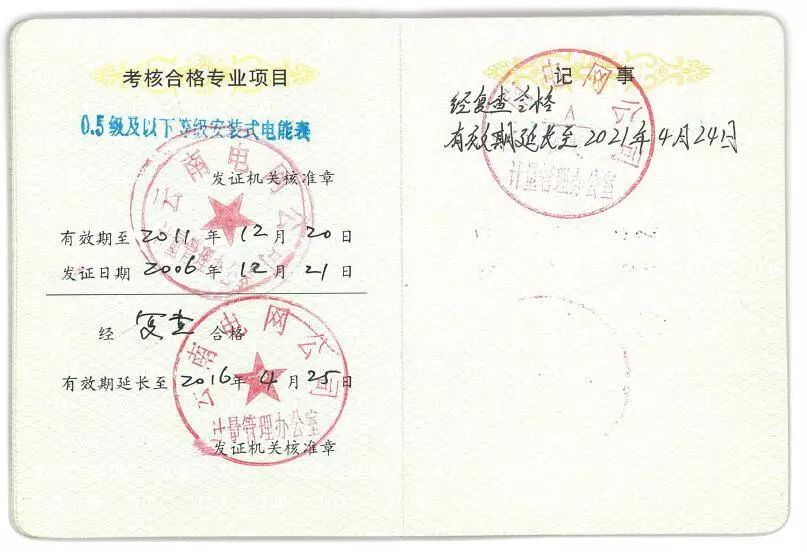 考核合格专业项目
0.5级及以下等级安装式电能表
云南电网公司
发证机关核准章
有效期至2011年12月20日
发证日期2006年12月21日
经复查合格
云南电网公司
有效期延长至2016年4月25日
计量管理办公室
发证机关核准章
记事
电网公司
经复查合格
有效期延长至2021年4月24日
计量管理办公室